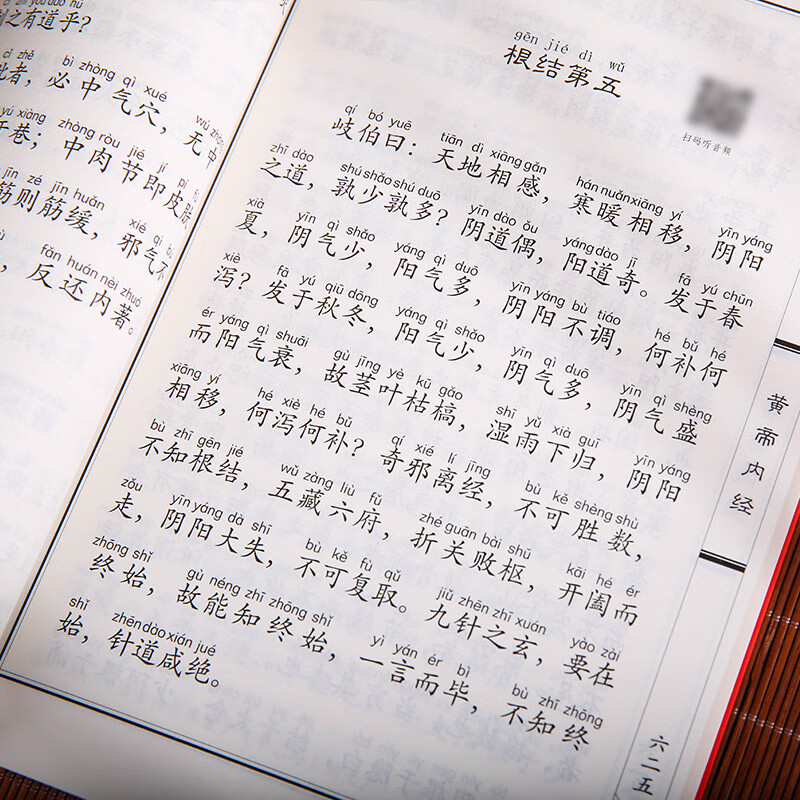 之有道乎？
者，必中气穴，无中
巷；中肉节即皮肤
筋则筋缓，邪气不
，反还内著。
gēn jié dì wǔ
根结第五
扫码听音频
qí bó yuē tiān dì xiāng gǎn hán nuǎn xiāng yí yīn yáng
岐伯曰：天地相感，寒暖相移，阴阳
zhī dào shú shǎo shú duō yīn dào ǒu yáng dào jī fā yú chūn
之道，孰少孰多？阴道偶，阳道奇。发于春
xià yīn qì shǎo yáng qì duō yīn yáng bù tiáo hé bǔ hé
夏，阴气少，阳气多，阴阳不调，何补何
xiè fā yú qiū dōng yáng qì shǎo yīn qì duō yīn qì shèng
泻？发于秋冬，阳气少，阴气多，阴气盛
ér yáng qì shuāi gù jīng yè kū gǎo shī yǔ xià guī yīn yáng
而阳气衰，故茎叶枯槁，湿雨下归，阴阳
xiāng yí hé xiè hé bǔ qí xié lí jīng bù kě shèng shù
相移，何泻何补？奇邪离经，不可胜数，
bù zhī gēn jié wǔ zàng liù fǔ zhé guān bài shū kāi hé ér
不知根结，五藏六府，折关败枢，开阖而
zǒu yīn yáng dà shī bù kě fù qǔ jiǔ zhēn zhī xuán yào zài
走，阴阳大失，不可复取。九针之玄，要在
zhōng shǐ gù néng zhī zhōng shǐ yì yán ér bì bù zhī zhōng
终始，故能知终始，一言而毕，不知终
shǐ zhēn dào xián jué
始，针道咸绝。
黄帝内经
六二五